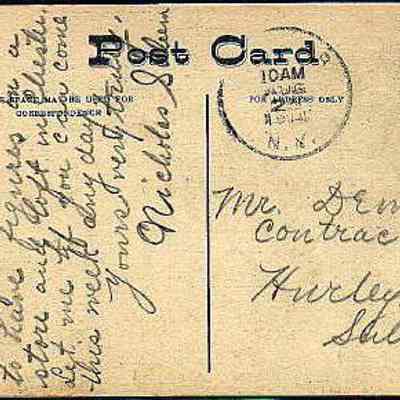 Post Card
THIS SPACE MAY BE USED FOR
CORRESPONDENCE
FOR ADDRESS ONLY
10 AM
N.Y.
to have figures on a
store and loft in
Let me if you can come
this week any day
Yours very truly,
Nicholas
Mr. Dem
Contrac
Hurley
Sul